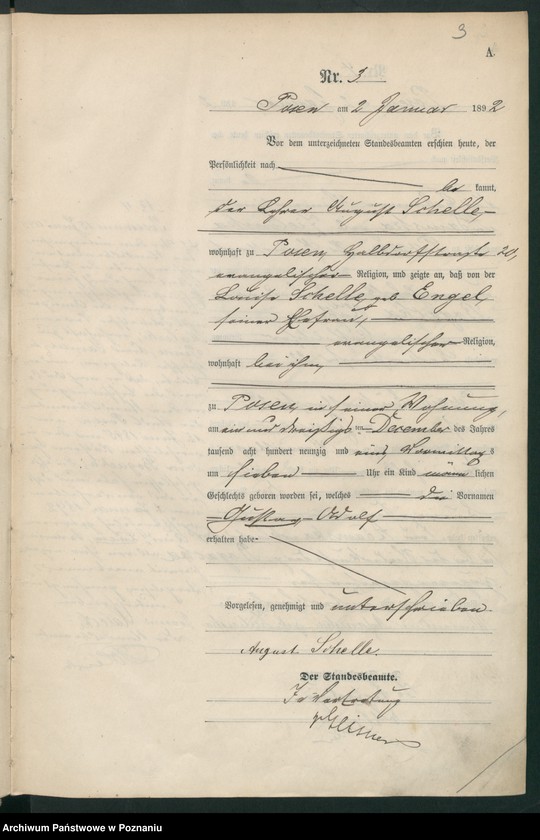 3
A.
Nr. 3
Posen am 2 Januar 1892
Vor dem unterzeichneten Standesbeamten erschien heute, der
Persönlichkeit nach
be kannt,
der Lehrer August Schelle,
wohnhaft zu Posen, Halbdorfstraße 20,
evangelischer Religion, und zeigte an, daß von der
Louise Schelle geb. Engel,
seiner Ehefrau,
evangelischer Religion,
wohnhaft bei ihm,
zu Posen, in seiner Wohnung,
am ein und dreißigsten December des Jahres
tausend acht hundert neunzig und eins, Vormittags
um sieben Uhr ein Kind männlichen
Geschlechts geboren worden sei, welches die Vornamen
Gustav Adolf
erhalten habe.
Vorgelesen, genehmigt und unterschrieben
August Schelle.
Der Standesbeamte.
In Vertretung
Archiwum Państwowe w Poznaniu